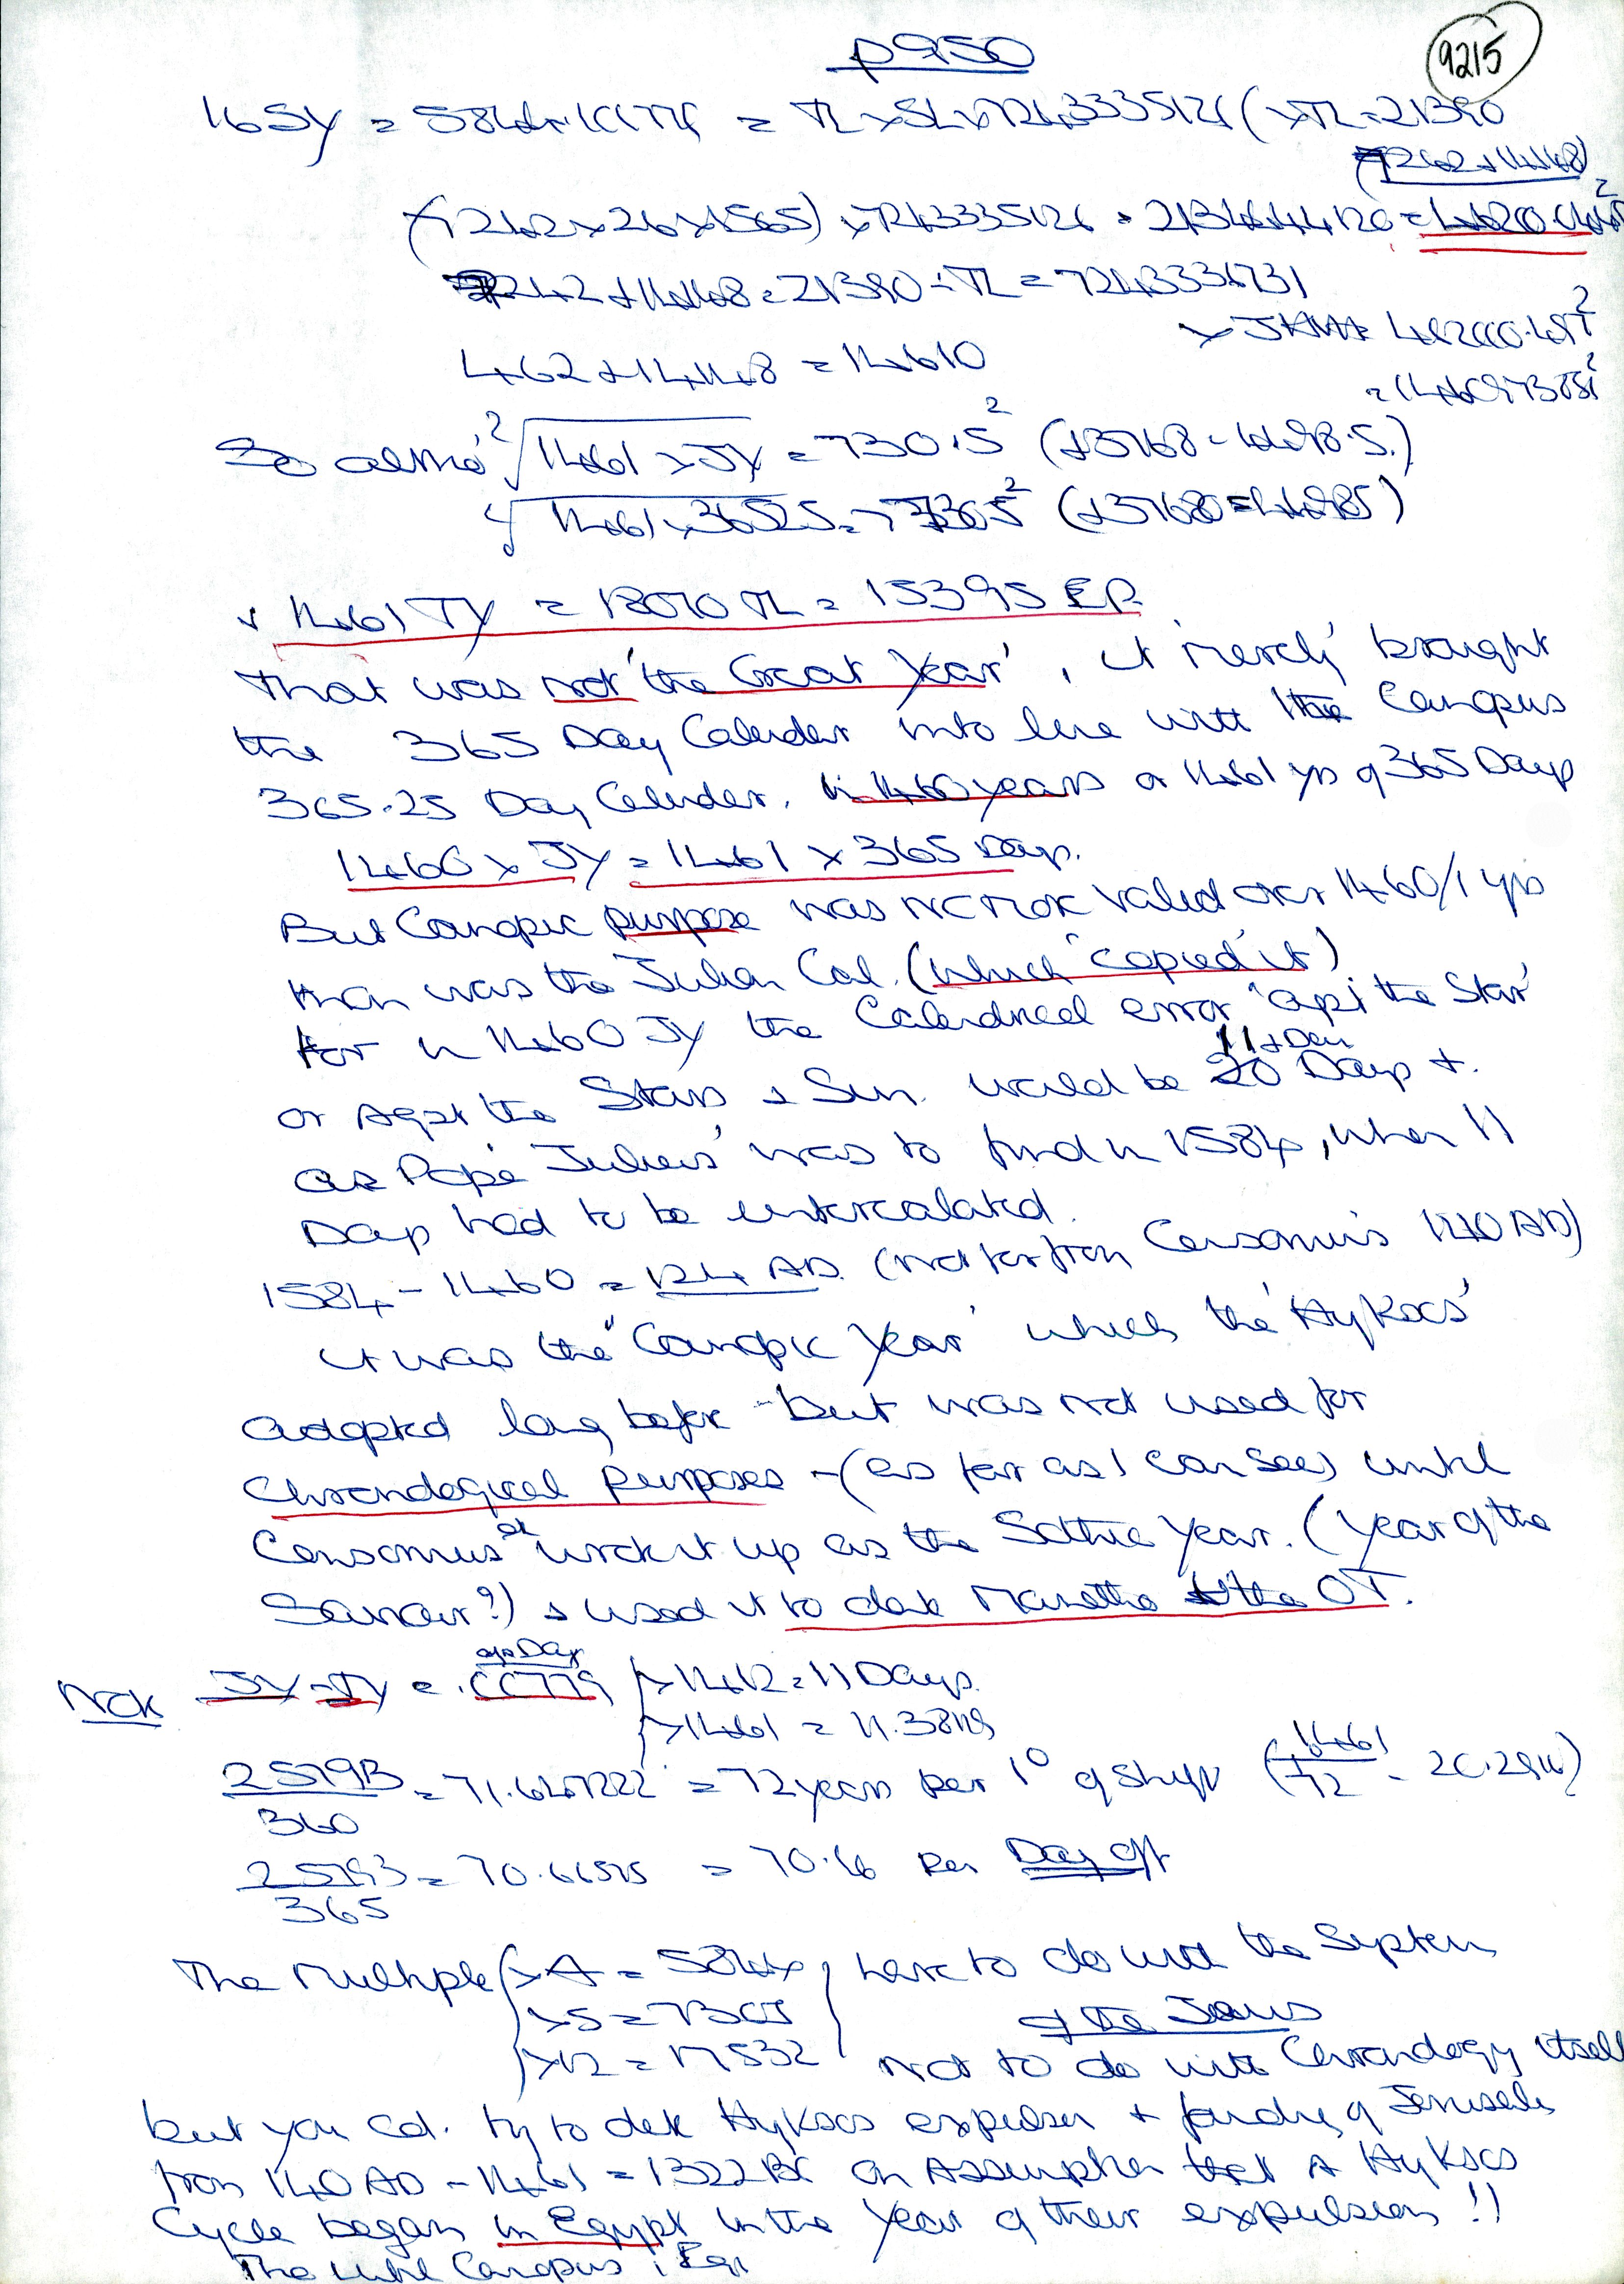 p950
9215
16SY = 584
= TL x SL x 7243335126 (x TL = 21390
7242 + 14148)
(7242 x 26 x 1565) x 7243335126 =
7242 + 14148 = 21390 ÷ TL = 7243336731
462 + 14148 = 14610
So also ²√1461 x JY = 730.5² (+3768 = 4498.5)
√1461 x 3652.5 = 7305² (+37680 = 44985)
1461 TY = 18070 TL = 15395 EP.
That was not 'the Great Year', it 'merely' brought
the 365 Day Calender into line with the Canopus
365.25 Day Calender. in 1460 years or 1461 yrs of 365 Days
1460 x JY = 1461 x 365 Days.
But Canopic purpose was no more valid over 1460/1 yrs
than was the Julian Cal. (which 'copied' it)
for in 1460 JY the Calendrical error 'agst the Star'
11 + Den
or Agst the Stars & Sun would be 20 Days +.
as Pope 'Julius' was to find in 1584, when 11
Days had to be intercalated.
1584 - 1460 = 124 AD. (not far from Censorinus 140 AD)
it was the "Canopic Year' which the 'Hyksos'
adopted long before - but was not used for
Chronological purposes - (as far as I can see) until
Censorinus et work it up as the Sothic Year. (Year of the
Saviour?) & used it to date Manetho & the OT.
Note JY - TY = .00779 x 1412 = 11 Days.
x 1461 = 11.38119
25793/360 = 71.647222 = 72 years per 1° of Shift (1461/72 = 20.2916)
25793/365 = 70.66575 = 70.66 per Day off
The Multiple x 4 = 5844 have to do with the System
x 5 = 7305 of the Jews
x 12 = 17532 not to do with Chronology itself
but you cd. try to date Hyksos expulsion & founding of Jerusalem
from 140 AD - 1461 = 1322 BC on Assumption that A Hyksos
Cycle began in Egypt in the Year of their expulsion !!
The until Canopus